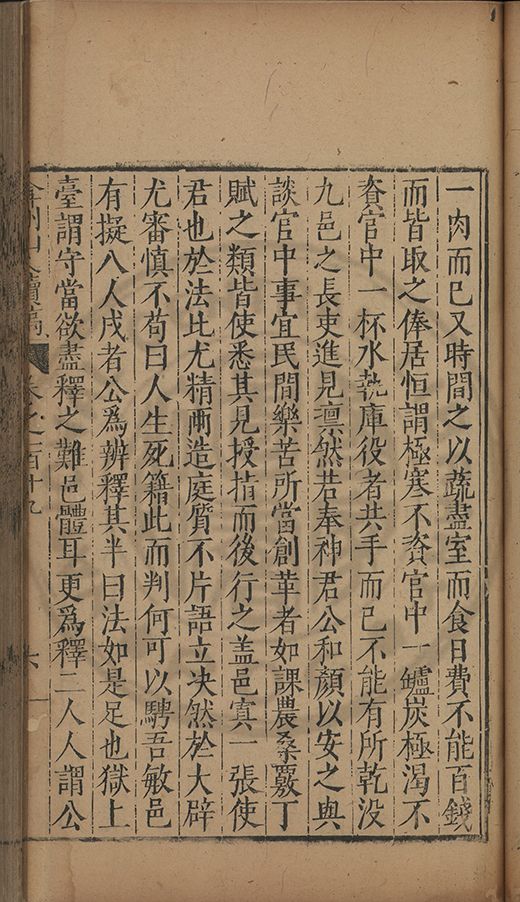 一肉而已又時間之以蔬盡室而食日費不能百錢
而皆取之俸居恒謂極寒不資官中一鱸炭極渴不
資官中一杯水執庫役者共手而已不能有所乾没
九邑之長吏進見凛然若奉神君公和顏以安之與
談官中事宜民間樂苦所當創革者如課農桑覈丁
賦之類皆使悉其見授指而後行之盖邑寘一張使
君也於法比尤精兩造庭質不片語立决然於大辟
尤審慎不苟曰人生死籍此而判何可以騁吾敏邑
有擬八人戍者公爲辨釋其半曰法如是足也獄上
臺謂守當欲盡釋之難邑體耳更爲釋二人人謂公
續稿 卷之一百十九 六